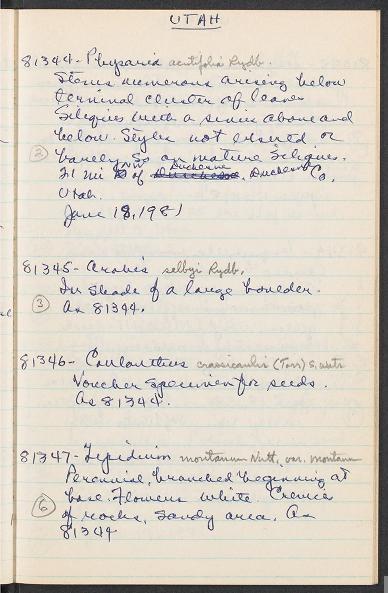 UTAH
81344 - Physaria acutifolia Rydb.
Stems numerous arising below
terminal cluster of leaves
Siliques with a sinus above and
below. Styles not exserted or
② barely so on mature siliques.
21 mi NW of Duchesne, Duchesne Co,
Utah.
June 18, 1981
81345 - Arabis selbyi Rydb.
In shade of a large boulder.
③ As 81344.
81346 - Caulanthus crassicaulis (Torr) S. Wats
Voucher specimen for seeds.
As 81344.
81347 - Lepidium montanum Nutt. var. montanum
Perennial, branched beginning at
⑥ base. Flowers white. Crevices
of rocks, sandy area. As
81344